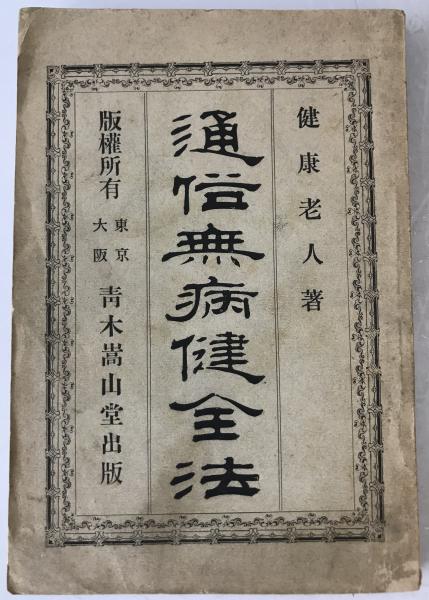 健康老人著
通俗無病健全法
版權所有
東京
大阪
青木嵩山堂出版